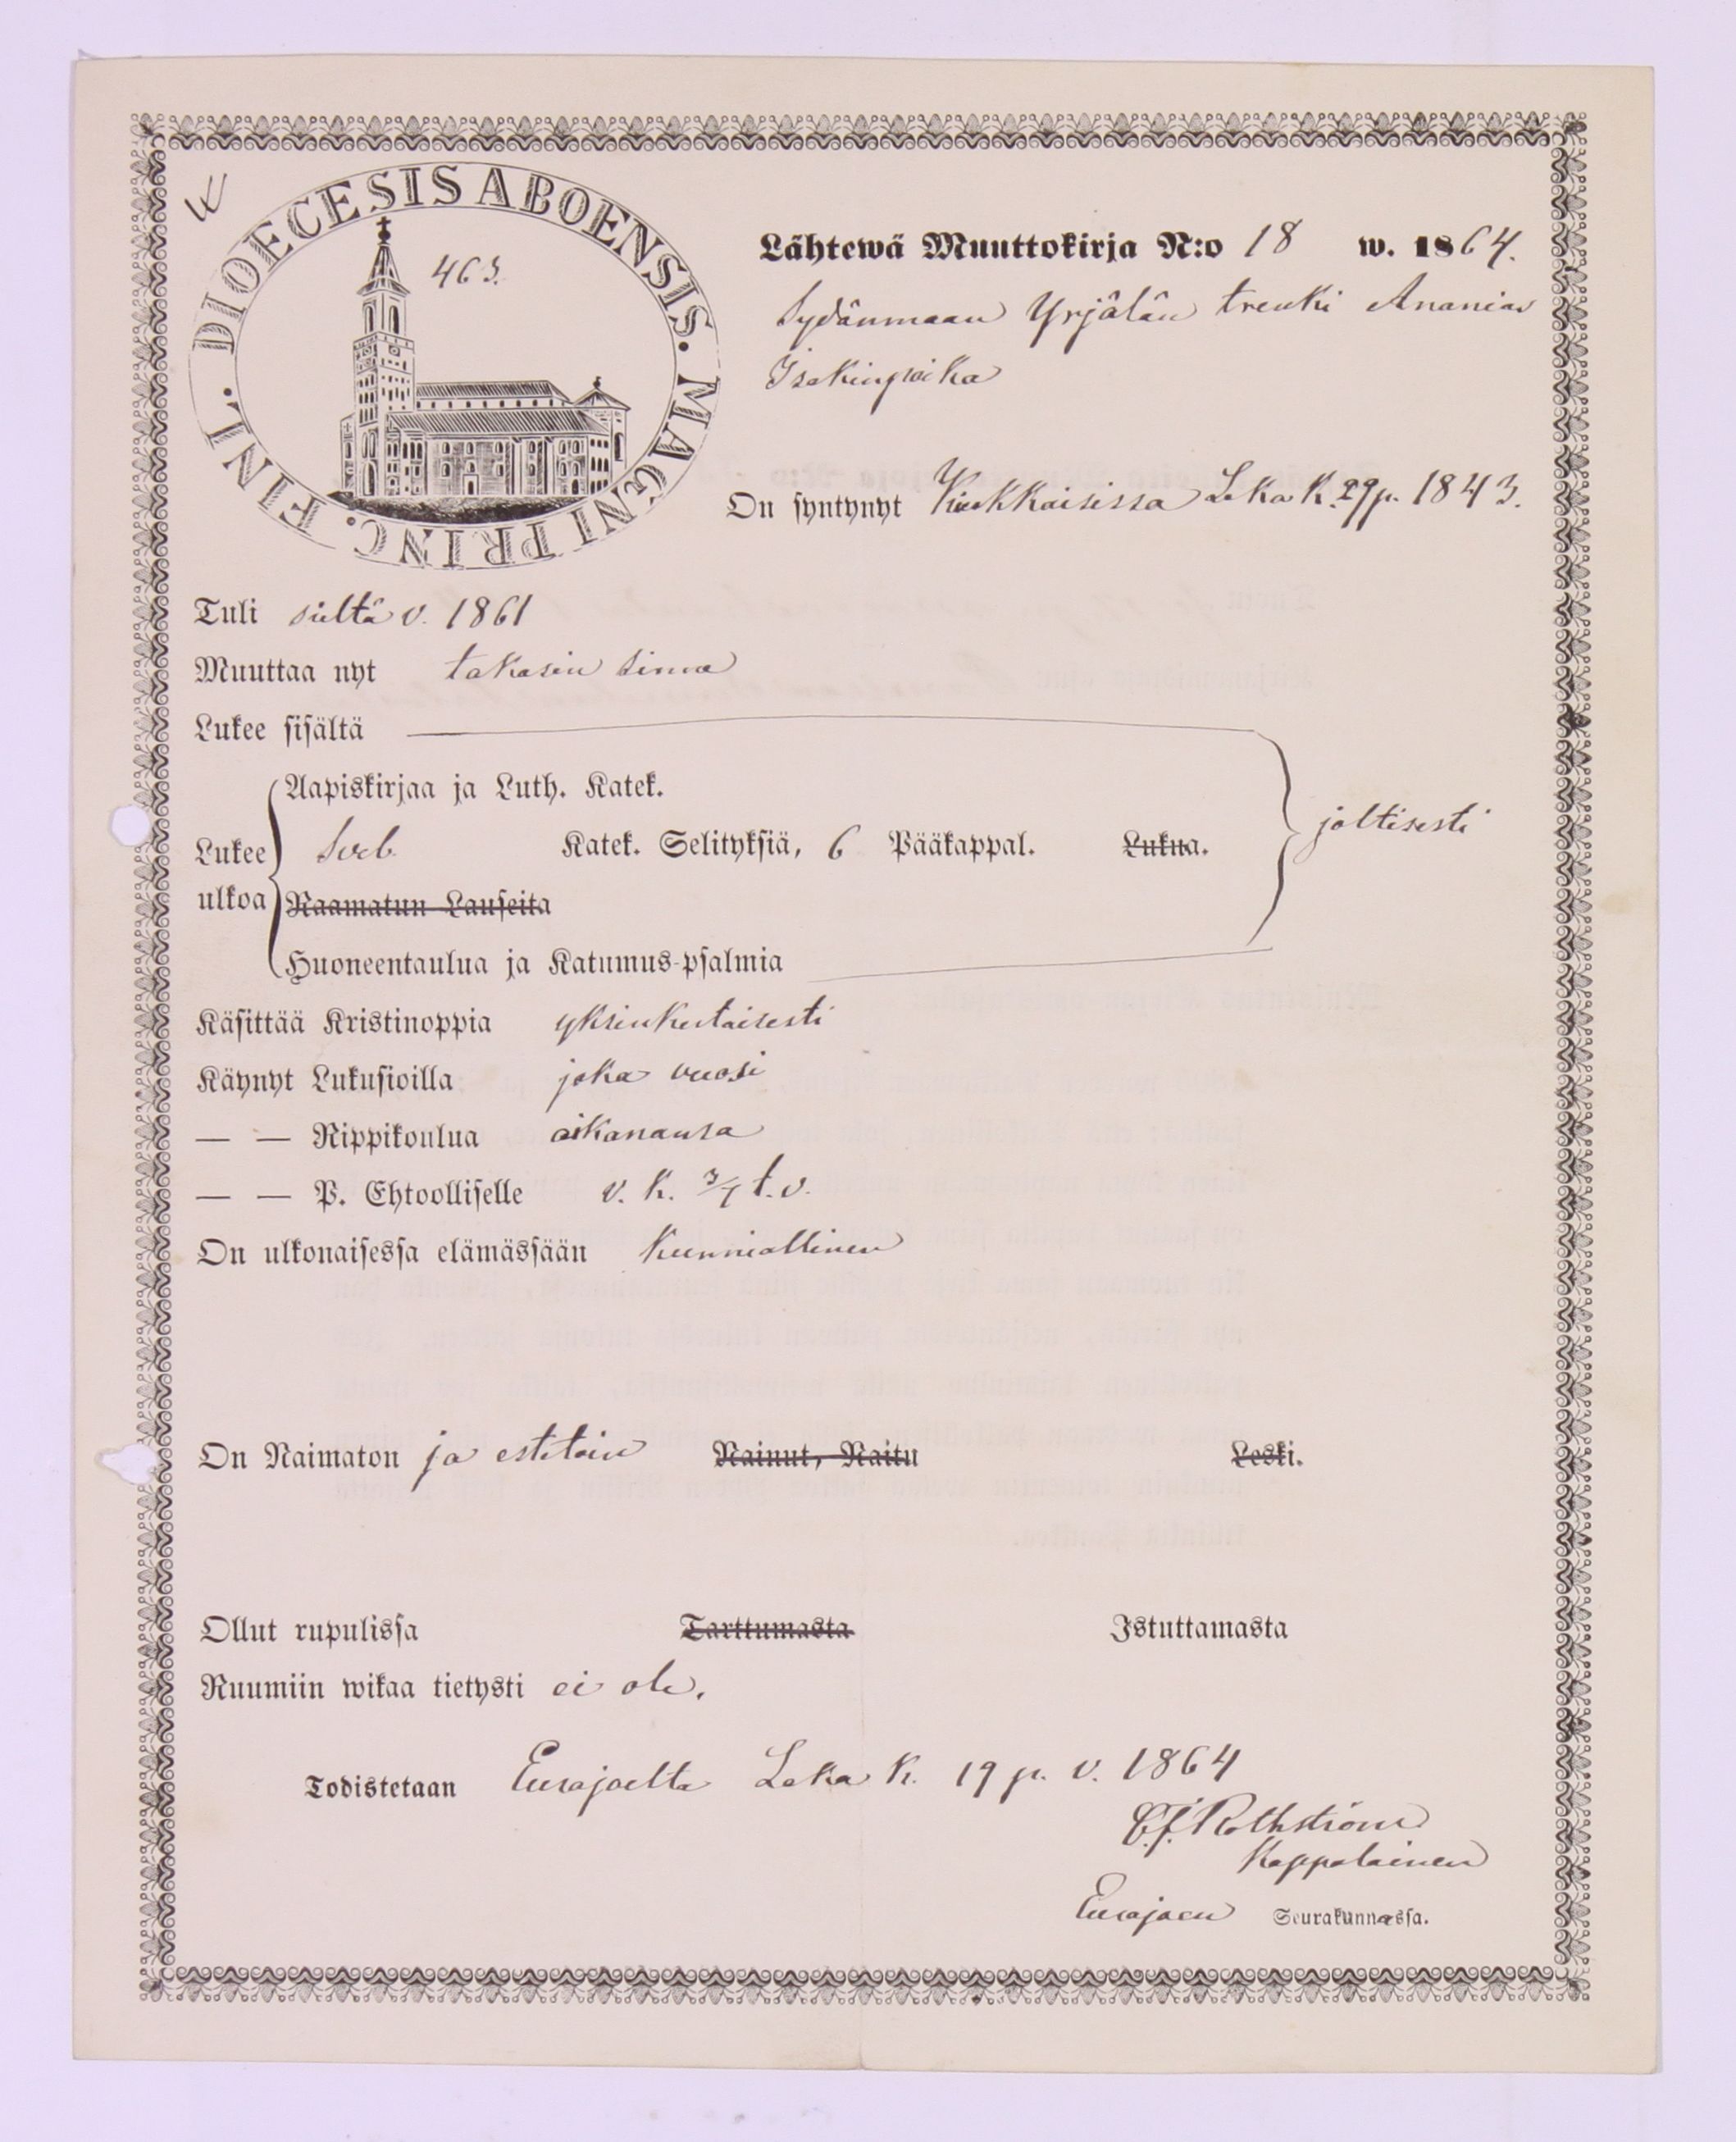 DIOECESIS ABOENSIS. MAGNI PRINC. FINL.
463.
Lähtewä Muuttokirja N:o 18 w. 1864.
Sydänmaan Yrjälän trenki Ananias
Isakinpoika
On syntynyt Kiukkaisissa Loka K. 29 p. 1843.
Tuli sieltä v. 1861
Muuttaa nyt takasin sinne
Lukee sisältä
Aapiskirjaa ja Luth. Katek.
Lukee ulkoa Sveb. Katek. Selityksiä, 6 Pääkappal. Lukua. joltisesti
Raamatun Lauseita
Huoneentaulua ja Katumus-psalmia
Käsittää Kristinoppia yksinkertaisesti
Käynyt Lukusioilla joka vuosi
— — Rippikoulua aikanansa
— — P. Ehtoolliselle v. k. 3/7 t. v.
On ulkonaisessa elämässään Kunniallinen
On Naimaton ja estetöin Nainut, Naitu Leski.
Ollut rupulissa Tarttumasta Istuttamasta
Ruumiin wikaa tietysti ei ole.
Todistetaan Eurajoelta Loka K. 19 p. v. 1864
C. J. Rothström
Kappalainen
Eurajoen Seurakunnassa.